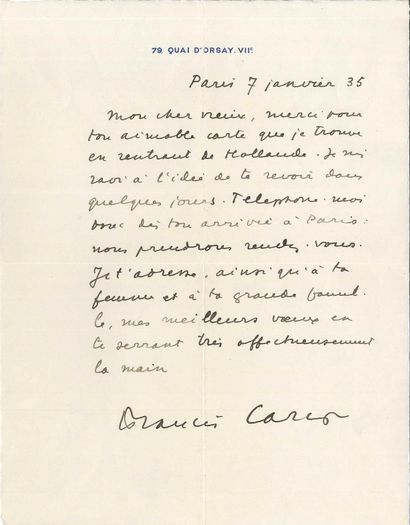 79, QUAI D'ORSAY. VIIᵉ
Paris 7 janvier 35
Mon cher vieux, merci pour
ton aimable carte que je trouve
en rentrant de Hollande. Je suis
ravi à l'idée de te revoir dans
quelques jours. Téléphone-moi
donc dès ton arrivée à Paris :
nous prendrons rendez-vous.
Je t'adresse, ainsi qu'à ta
femme et à ta grande famil-
le, mes meilleurs vœux en
te serrant très affectueusement
la main
Francis Carco